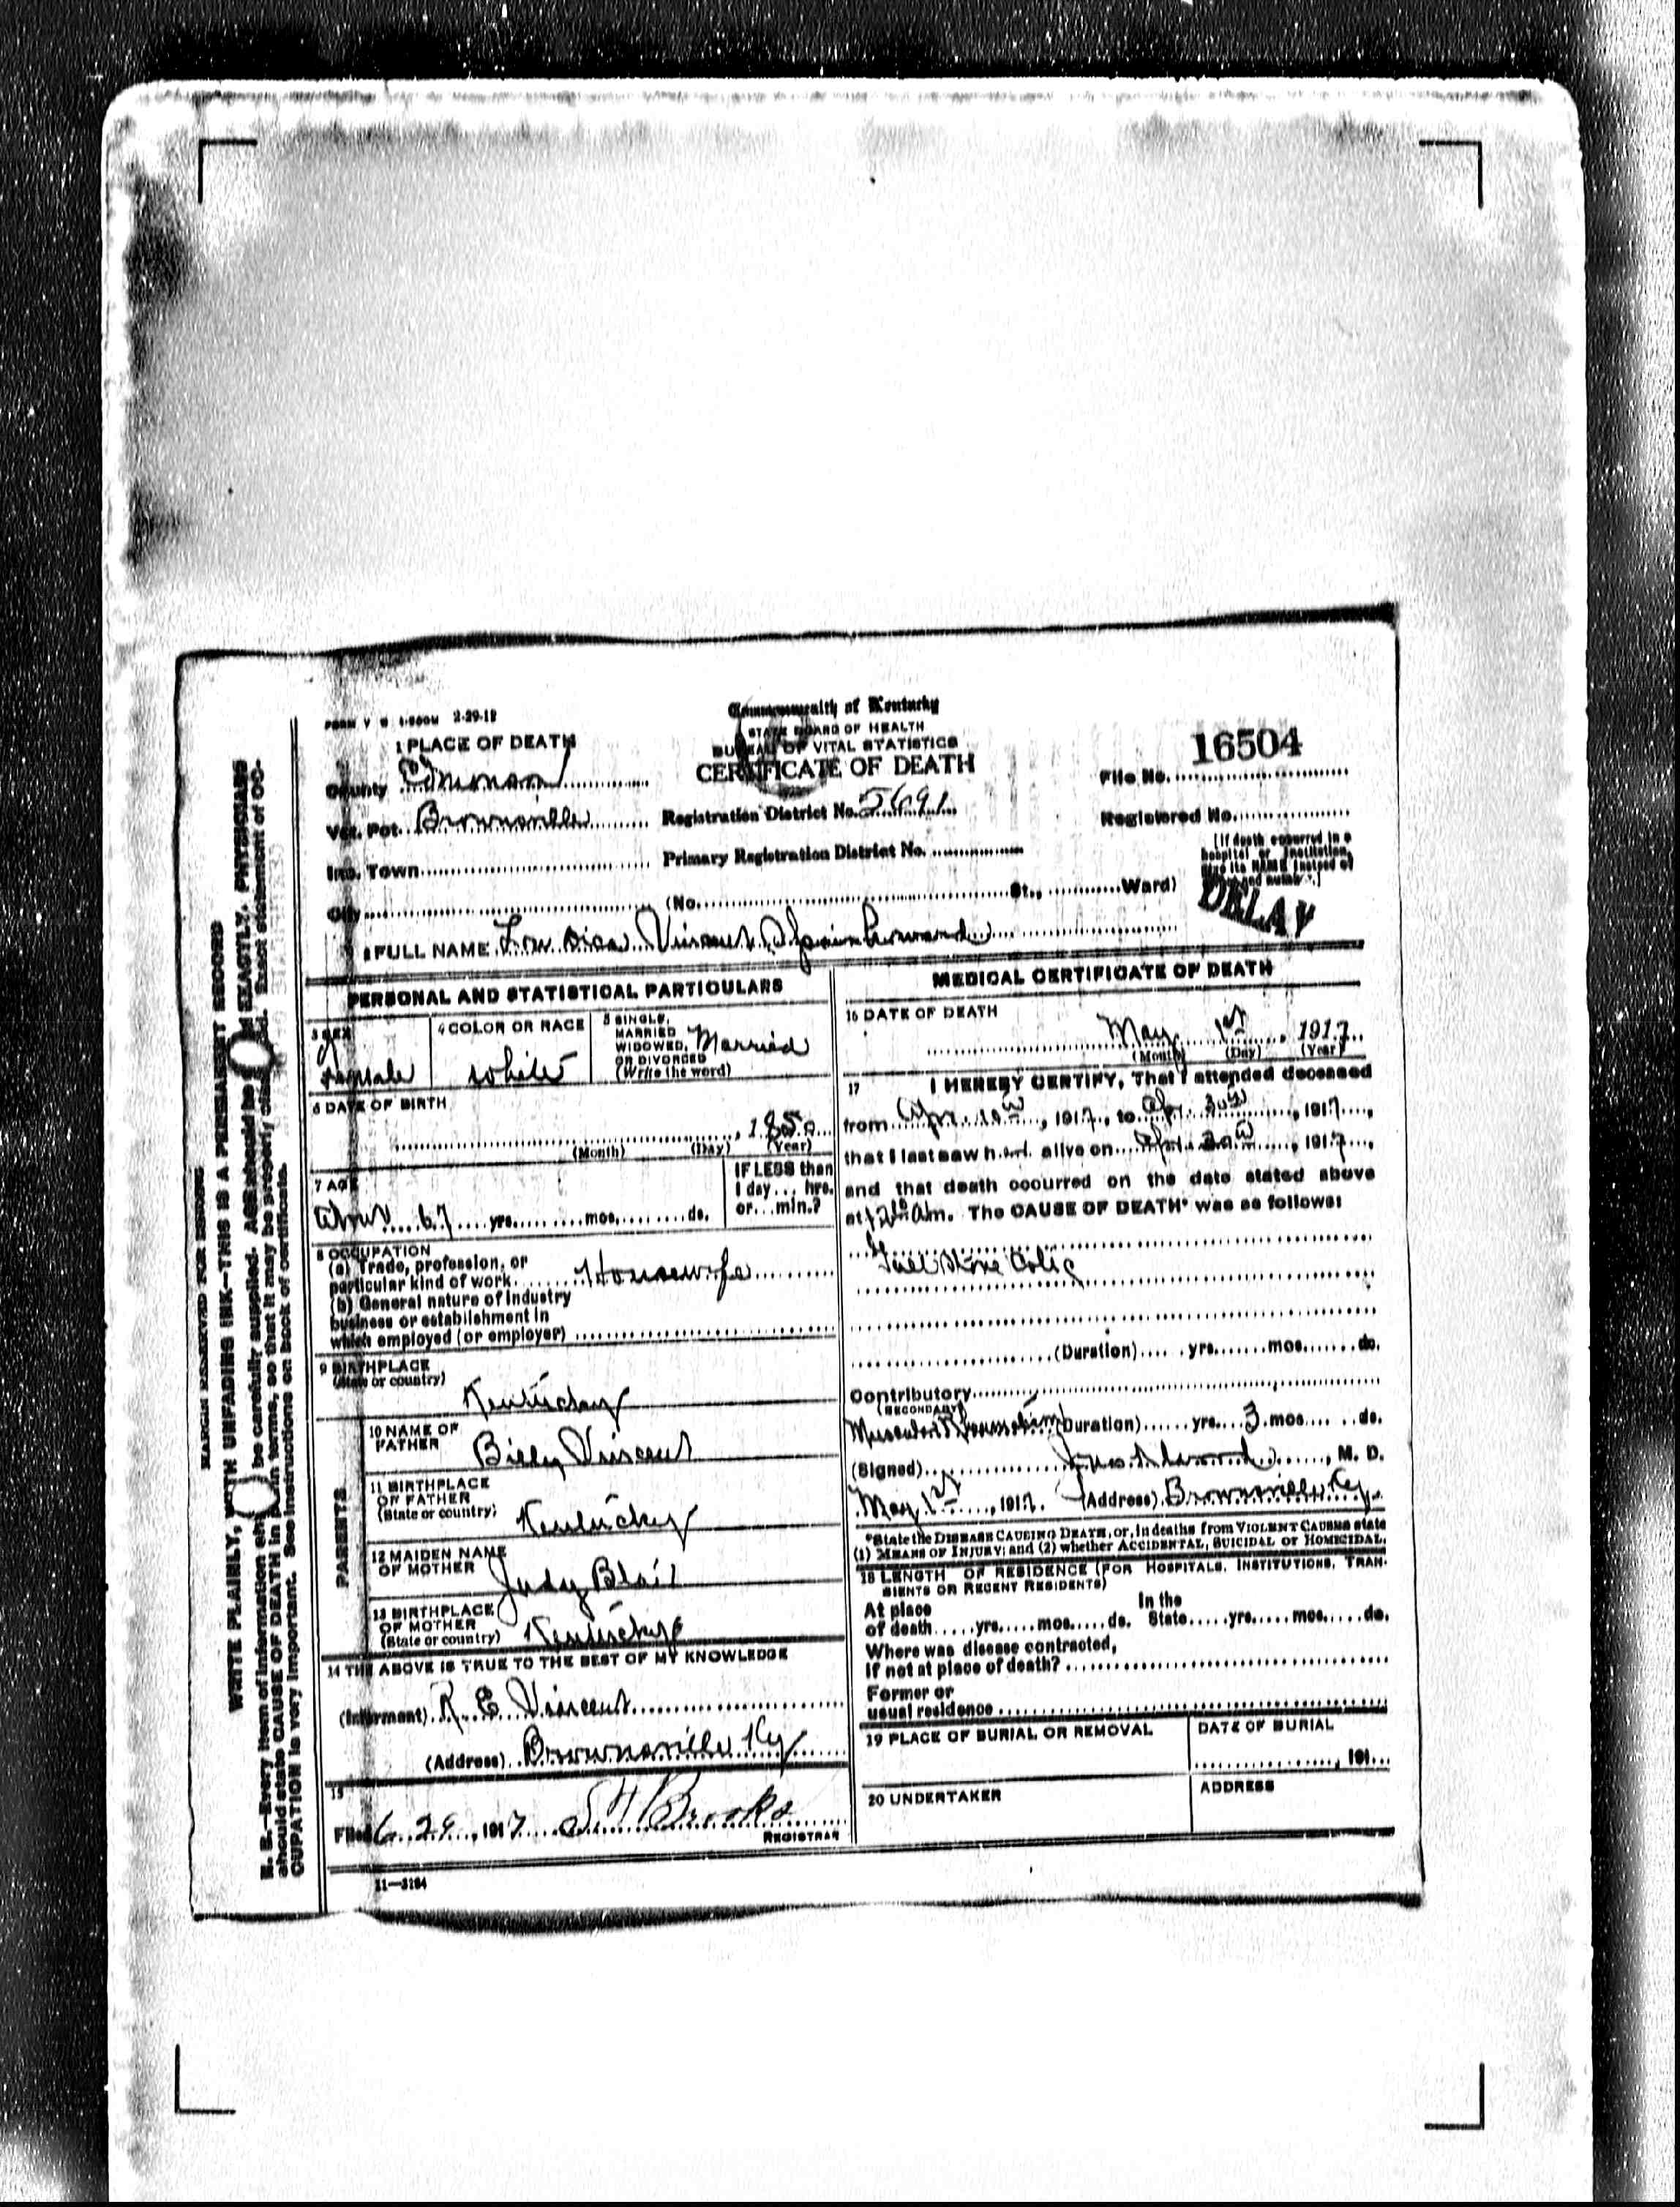 MARGIN RESERVED FOR BINDING
WRITE PLAINLY, WITH UNFADING INK—THIS IS A PERMANENT RECORD
N. B.—Every item of information should be carefully supplied. AGE should be EXACTLY. PHYSICIANS
should state CAUSE OF DEATH in plain terms, so that it may be properly classified. Exact statement of OC-
CUPATION is very important. See instructions on back of certificate.
FORM V. S. 2-29-12
Commonwealth of Kentucky
STATE BOARD OF HEALTH
BUREAU OF VITAL STATISTICS
CERTIFICATE OF DEATH
16504
File No.
1 PLACE OF DEATH
County Edmonson
Vot. Pct. Brownsville
Registration District No. 5691
Registered No.
Inc. Town
Primary Registration District No.
[If death occurred in a hospital or institution, give its NAME instead of street and number.]
City (No. St., Ward)
DELAY
2 FULL NAME Vincent
PERSONAL AND STATISTICAL PARTICULARS
3 SEX
Female
4 COLOR OR RACE
White
5 SINGLE, MARRIED WIDOWED, OR DIVORCED (Write the word)
Married
6 DATE OF BIRTH
, 1850
(Month) (Day) (Year)
7 AGE
About 67 yrs. mos. ds.
IF LESS than 1 day... hrs. or... min.?
8 OCCUPATION
(a) Trade, profession, or
particular kind of work Housewife
(b) General nature of industry
business or establishment in
which employed (or employer)
9 BIRTHPLACE
(State or country)
Kentucky
PARENTS
10 NAME OF FATHER
Billy Vincent
11 BIRTHPLACE OF FATHER
(State or country)
Kentucky
12 MAIDEN NAME OF MOTHER
Judy Blair
13 BIRTHPLACE OF MOTHER
(State or country)
Kentucky
14 THE ABOVE IS TRUE TO THE BEST OF MY KNOWLEDGE
(Informant) R. E. Vincent
(Address) Brownsville Ky
15
Filed 6 29, 1917 Brooks
REGISTRAR
11—3184
MEDICAL CERTIFICATE OF DEATH
16 DATE OF DEATH
May 1st, 1917
(Month) (Day) (Year)
17 I HEREBY CERTIFY, That I attended deceased
from Apr., 1917, to Apr. 30, 1917,
that I last saw her alive on Apr., 1917,
and that death occurred on the date stated above
at 12 a.m. The CAUSE OF DEATH* was as follows:
Gall Stone Colic
(Duration) yrs. mos. ds.
Contributory
(SECONDARY)
Muscular Rheumatism (Duration) yrs. 3 mos. ds.
(Signed) , M. D.
May 1st, 1917. (Address) Brownsville Ky.
*State the DISEASE CAUSING DEATH, or, in deaths from VIOLENT CAUSES state
(1) MEANS OF INJURY; and (2) whether ACCIDENTAL, SUICIDAL or HOMICIDAL.
18 LENGTH OF RESIDENCE (FOR HOSPITALS, INSTITUTIONS, TRAN-
SIENTS OR RECENT RESIDENTS)
At place In the
of death yrs. mos. ds. State yrs. mos. ds.
Where was disease contracted,
If not at place of death?
Former or
usual residence
19 PLACE OF BURIAL OR REMOVAL
DATE OF BURIAL
, 191
20 UNDERTAKER
ADDRESS